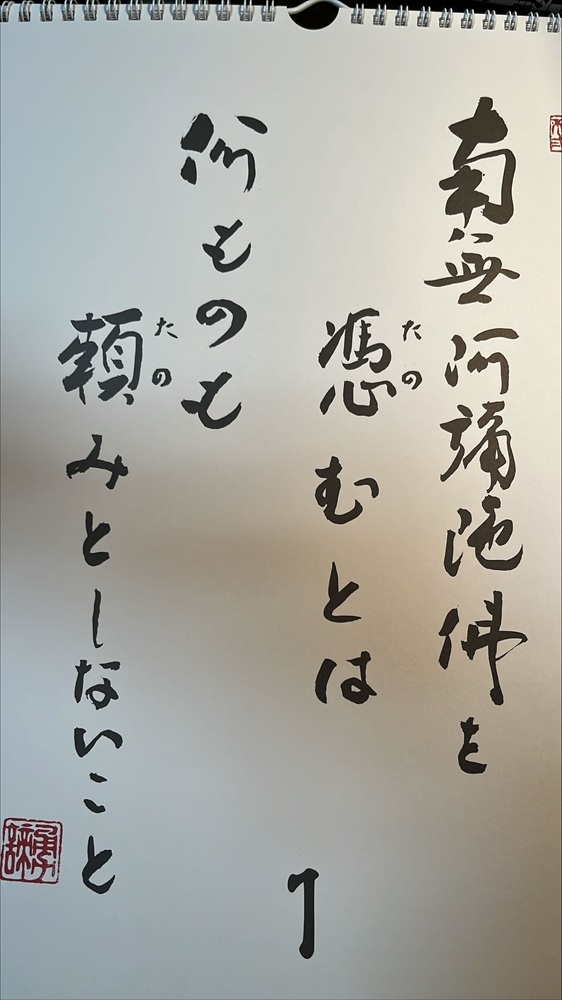 南無阿彌陀佛を
憑むとは
たの
何ものも
頼みとしないこと
たの
1